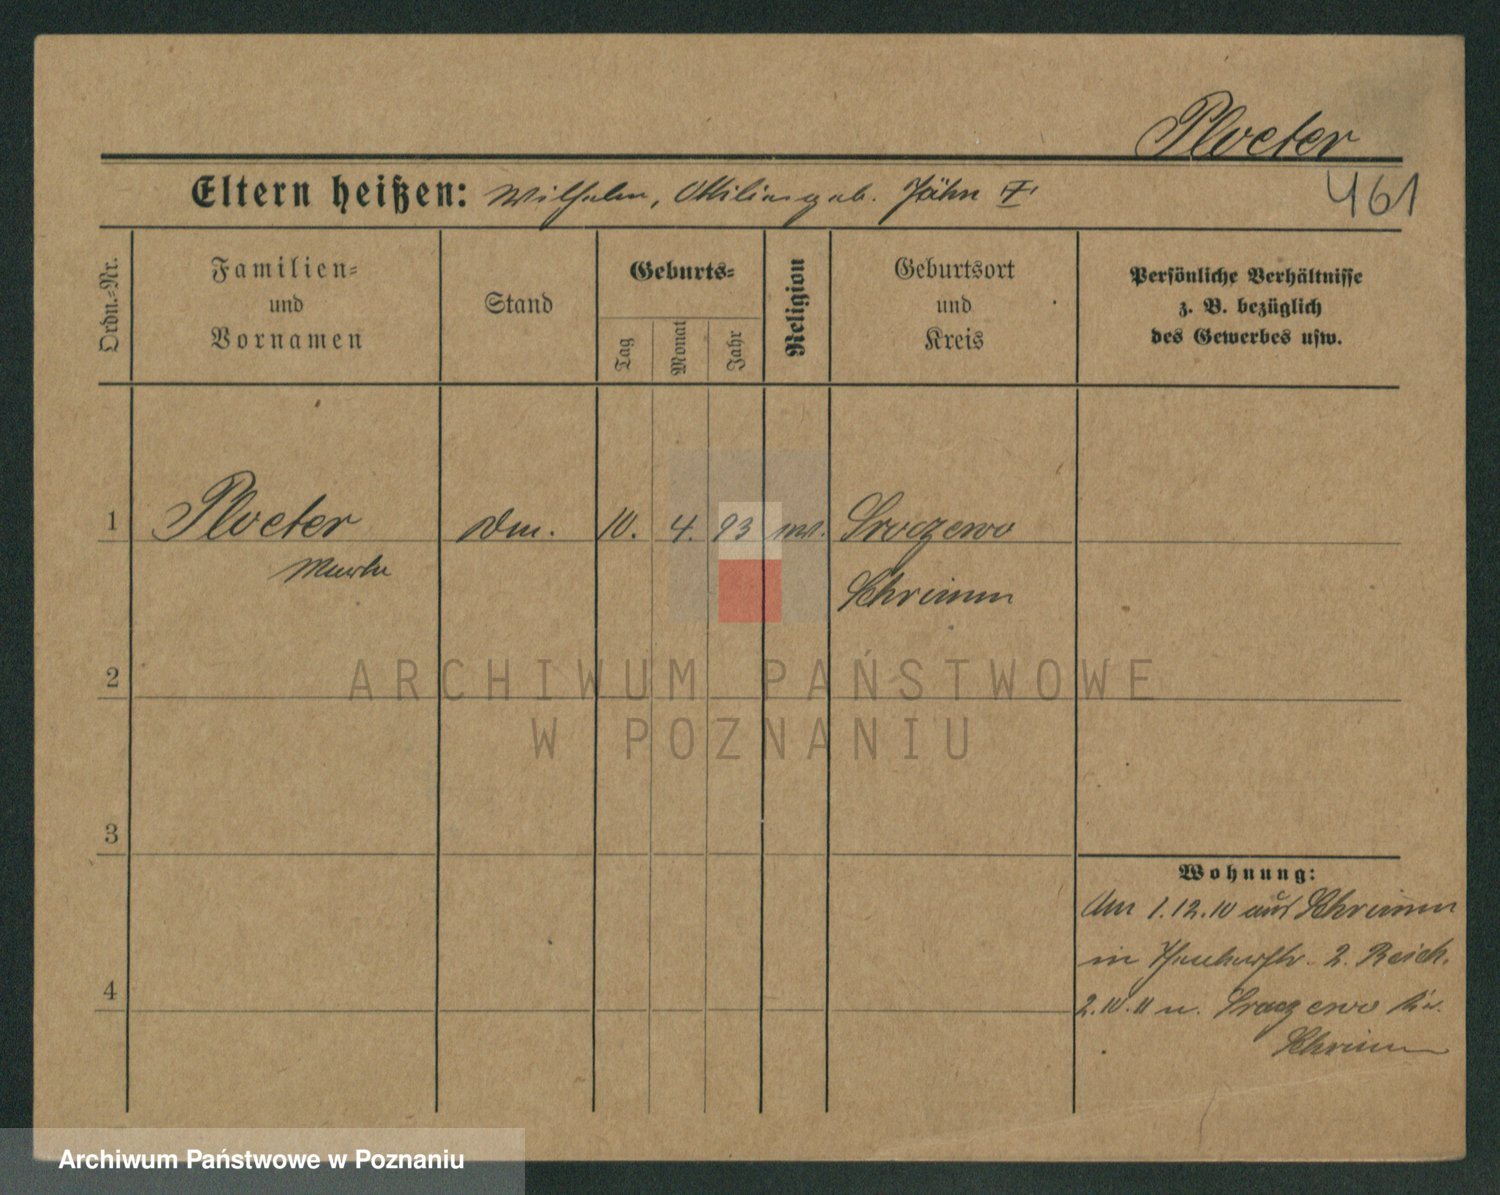 Ploeter
461
Eltern heißen: Wilhelm, Ottilie geb. Jähn
Ordn.-Nr.
Familien-
und
Vornamen
Stand
Geburts-
Tag
Monat
Jahr
Religion
Geburtsort
und
Kreis
Persönliche Verhältnisse
z. B. bezüglich
des Gewerbes usw.
1 Ploeter 10. 4. 93 Sroczewo
Schrimm
2
ARCHIWUM PAŃSTWOWE
W POZNANIU
3
Wohnung:
Am 1.12.10 aus Schrimm
in 2. Reich.
4
2.10.11 n. Sroczewo
Schrimm
Archiwum Państwowe w Poznaniu